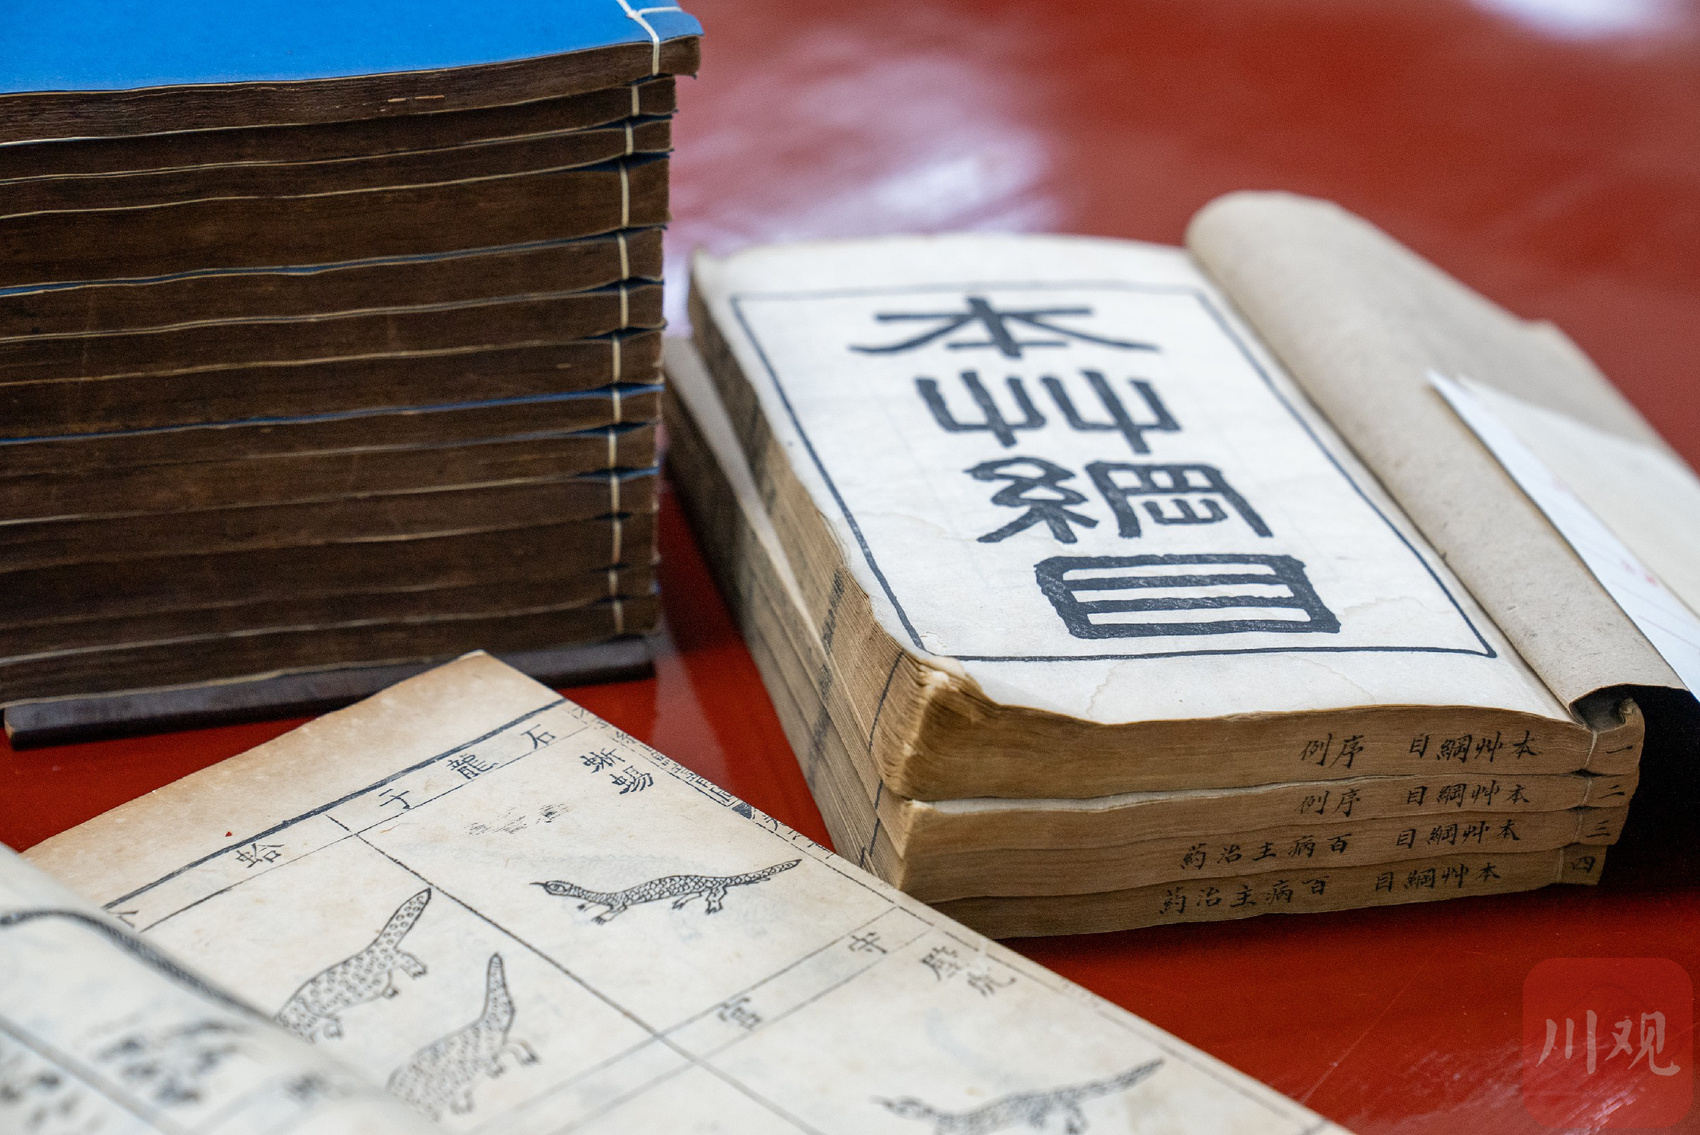 本
艸
綱
目
本艸綱目 序例 一
本艸綱目 序例 二
本艸綱目 百病主治葯 三
本艸綱目 百病主治葯 四
石龍子
蜥蜴
蛤
守宮
壁虎
川观